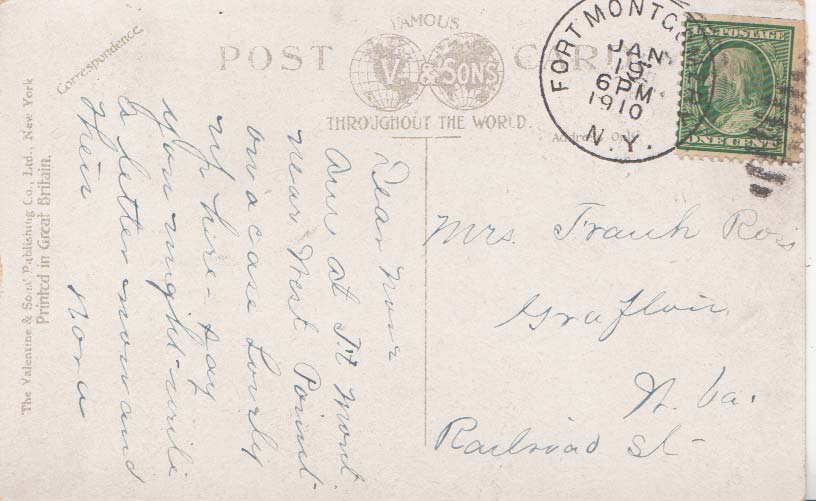 Correspondence.
FAMOUS
POST CARD
V. & SONS
THROUGHOUT THE WORLD.
Address Only
FORT MONTGO
JAN
19
6 PM
1910
N.Y.
U.S. POSTAGE
ONE CENT
Dear
Am at Ft Mont.
near West Point
on a case Lovely
up here - say
you might write
a letter now and
then
Nora
Mrs. Frank Ross
Grafton
W. Va.
Railroad St-
The Valentine & Sons' Publishing Co., Ltd., New York
Printed in Great Britain.